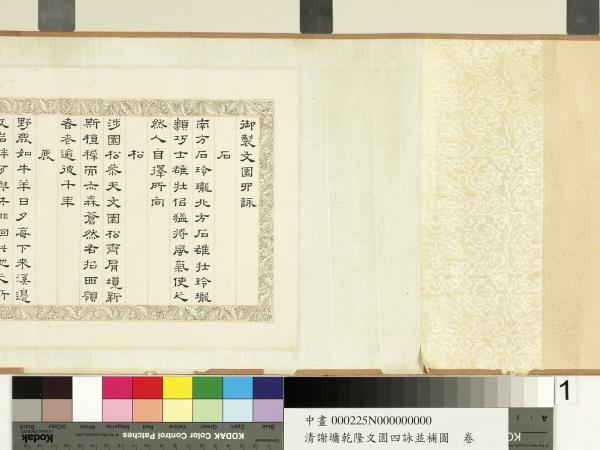 御製文園四詠
石
南方石玲瓏北方石雄壯玲瓏
類巧士雄壯侶猛將風氣使之
然人自擇所向
松
涉園松參天文園松齊肩境新
斯植稺而亦森蒼然名招西嶺
春者遄彼千年
鹿
野鹿如牛羊日夕每下來溪邊
中畫 000225N000000000
清謝墉乾隆文園四詠並補圖 卷
1
KODAK Color Control Patches
Kodak
Blue
Cyan
Green
Yellow
Red
Magenta
White
3/Color
Black